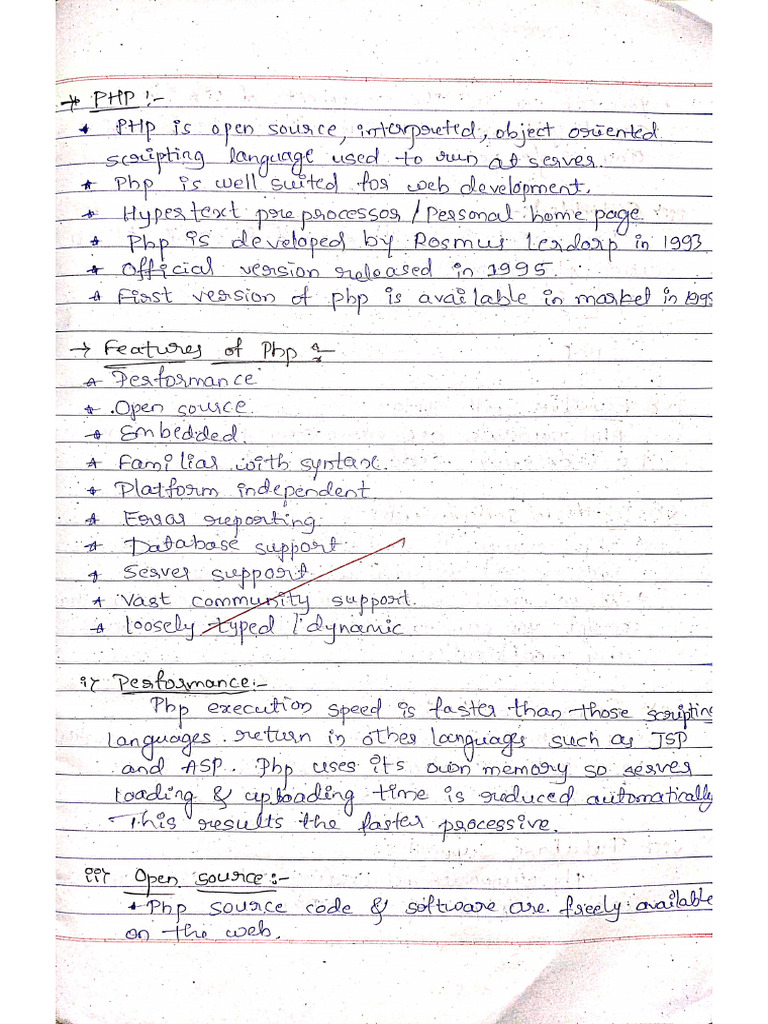 → PHP :-
* PHP is open source, interpreted, object oriented
scripting language used to run at server.
* Php is well suited for web development.
* Hypertext preprocessor / Personal home page
* Php is developed by Rosmus Lerdorp in 1993
* Official version released in 1995.
* First version of php is available in market in 1995
→ Features of Php :-
* Performance
* Open source.
* Embedded.
* Familiar with syntax.
* Platform independent
* Error reporting.
* Database support
* Server support
* Vast community support.
* loosely typed / dynamic
i) Performance:-
Php execution speed is faster than those scripting
languages return in other languages such as JSP
and ASP. Php uses its own memory so server
loading & uploading time is reduced automatically
This results the faster processive.
ii) Open source :-
* Php source code & software are freely available
on the web.